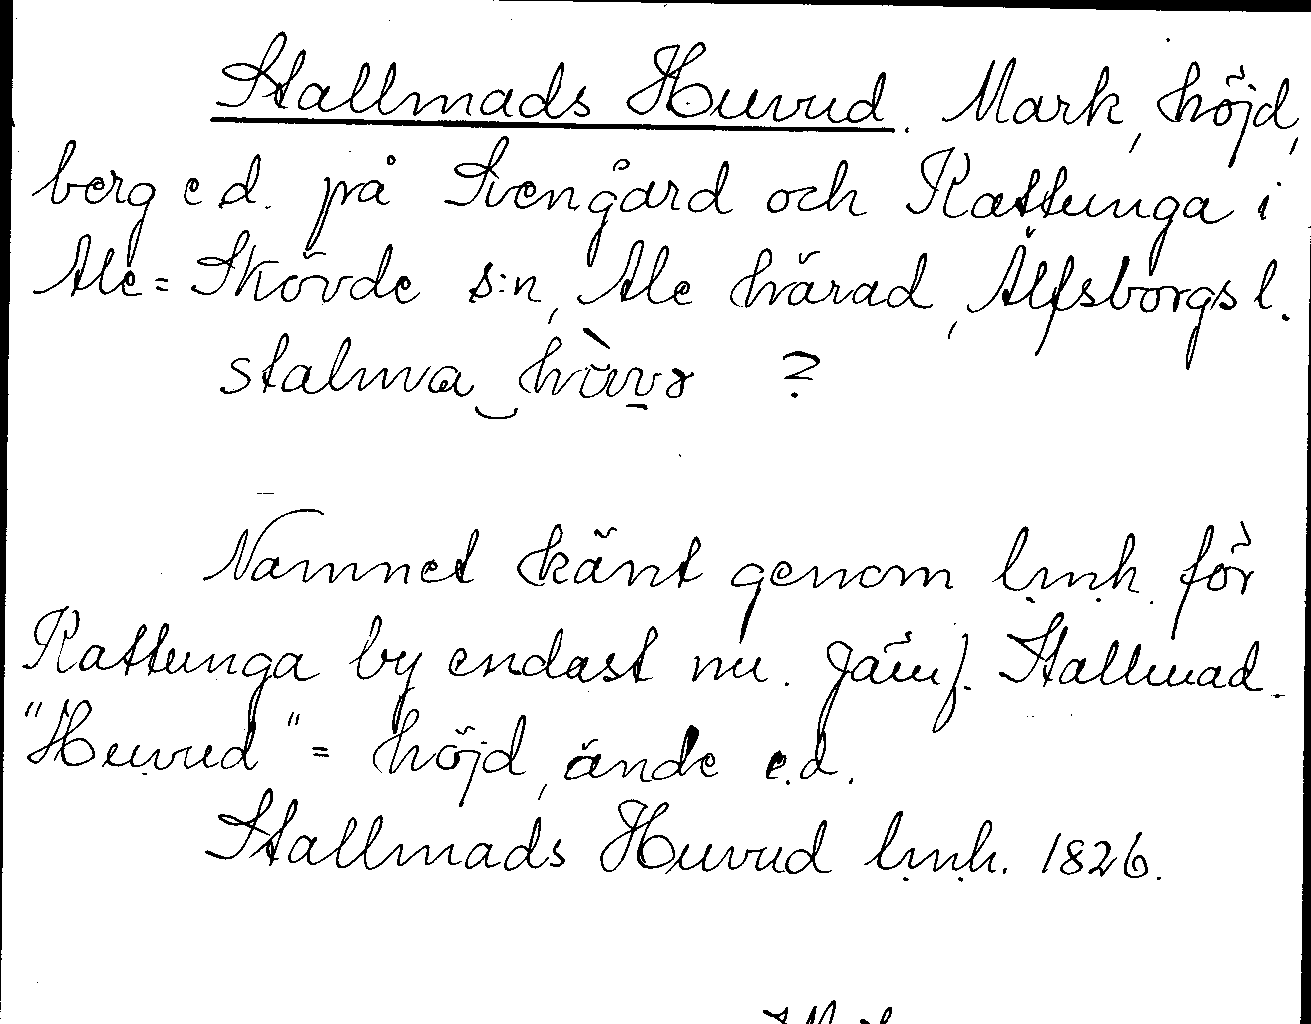 Stallmads Huvud. Mark, höjd,
berg e d. på Svengård och Rattunga i
Ale=Skövde s:n, Ale härad, Älfsborgs l.
stalma hùvə ?
Namnet känt genom l.m.h. för
Rattunga by endast nu. Jämf. Stallmad.
"Huvud" = höjd, ände e.d.
Stallmads Huvud l.m.h. 1826.